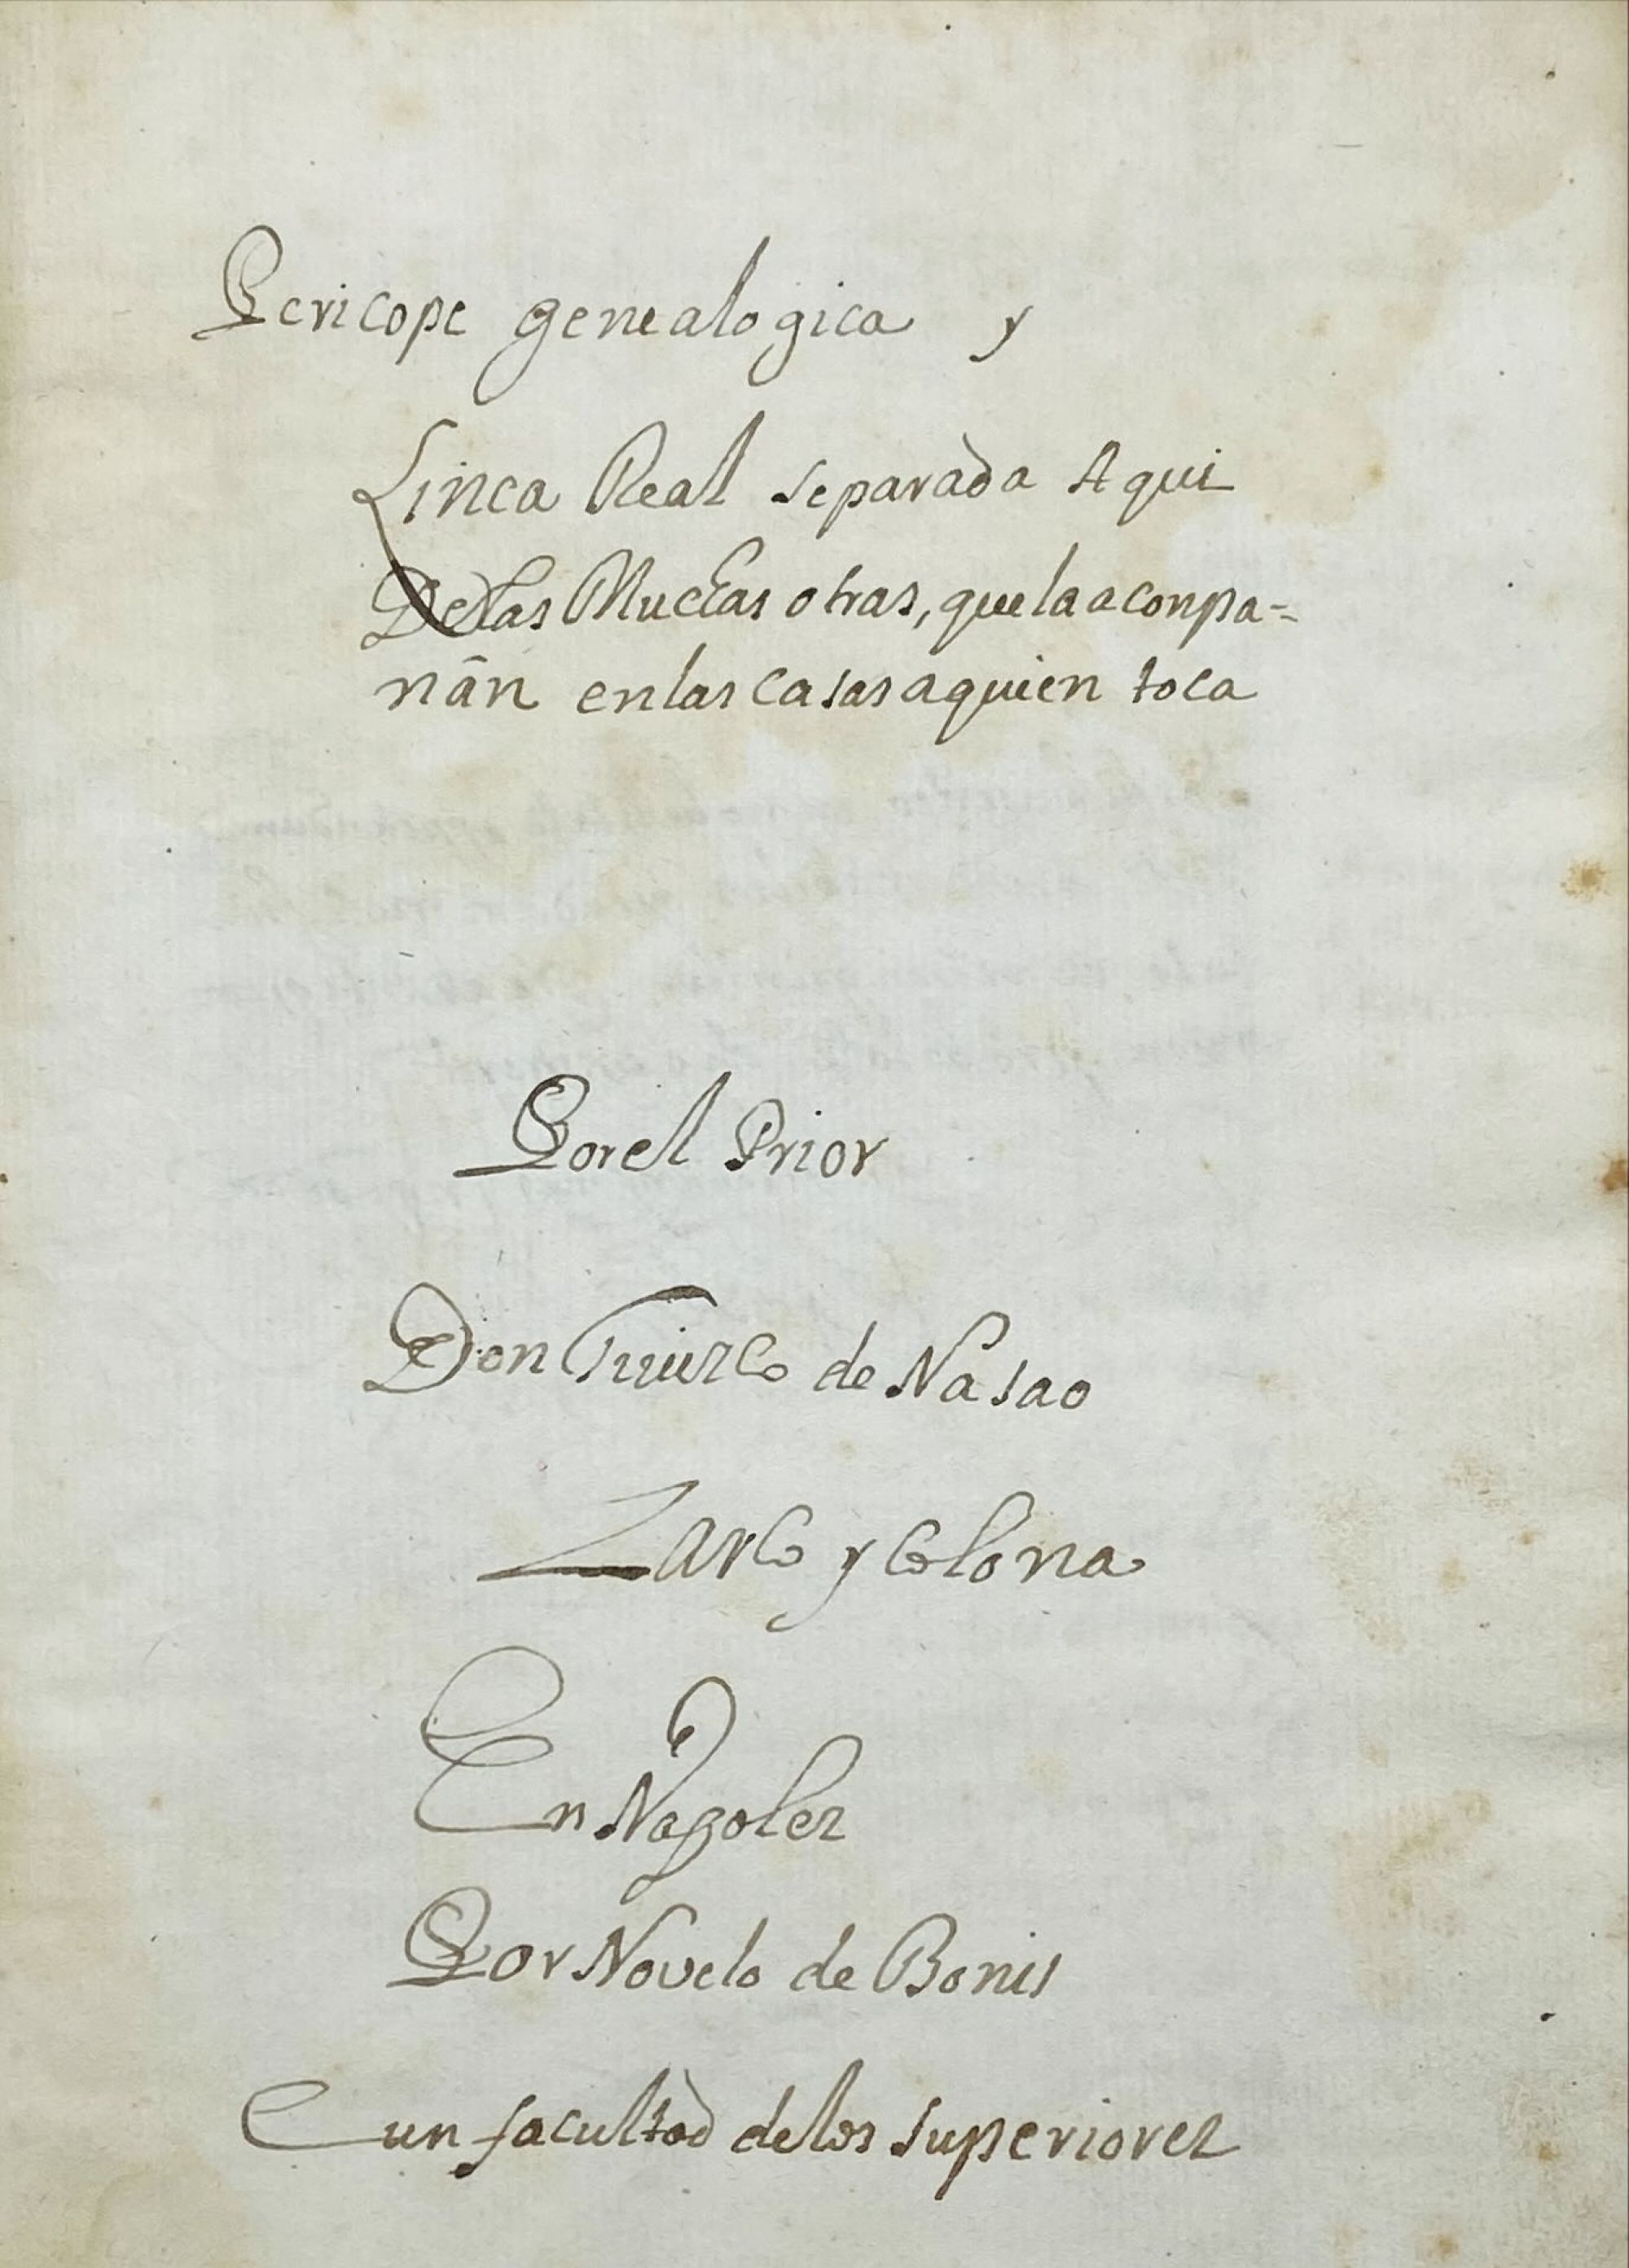 Pericope genealogica y
Linea Real separada Aqui
Delas Muchas otras, que la aconpa-
nãn en las casas a quien toca
Por el Prior
Don Tiuizco de Nasao
Zarco y Colona
En Napoles
Por Novelo de Bonis
Cun facultad de los superiores